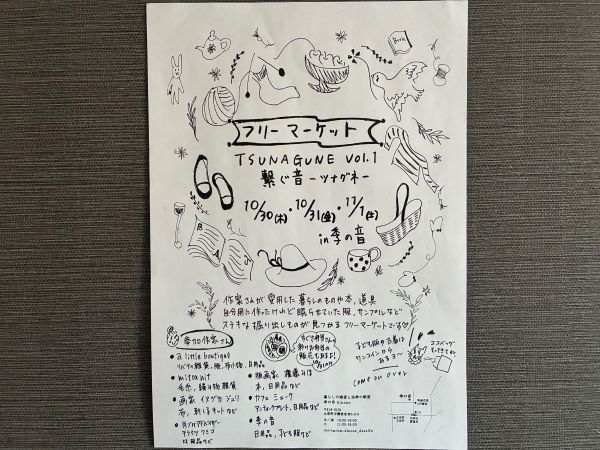 Book
フリーマーケット
TSUNAGUNE VOL.1
繋ぐ音-ツナグネ-
10/30(木)・10/31(金)・11/1(土)
in 季の音
作家さんが愛用した暮らしのものや本、道具
自分用に作ったけれど眠らせていた服、サンプルなど
ステキな掘り出しものが見つかるフリーマーケットです
参加作家さん
• a little boutique
リバティ雑貨、服、布小物、日用品
• miteknit
毛糸、編み物雑貨
• 画家 イヌヅカジュリ
布、刺しゅうキットなど
日用品など
• 版画家
本、日用品など
• カフェ ミューク
アンティークプリント、日用品など
• 季の音
日用品、子ども服など
子ども服や古着は
ワンコインから
あるヨ〜
エコバッグ
COME ON OVER
暮らしの雑貨と出季の教室
季の音